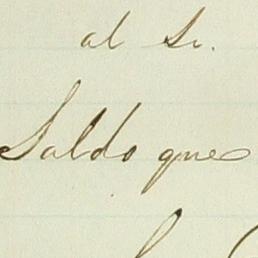 al Sr.
Saldo que